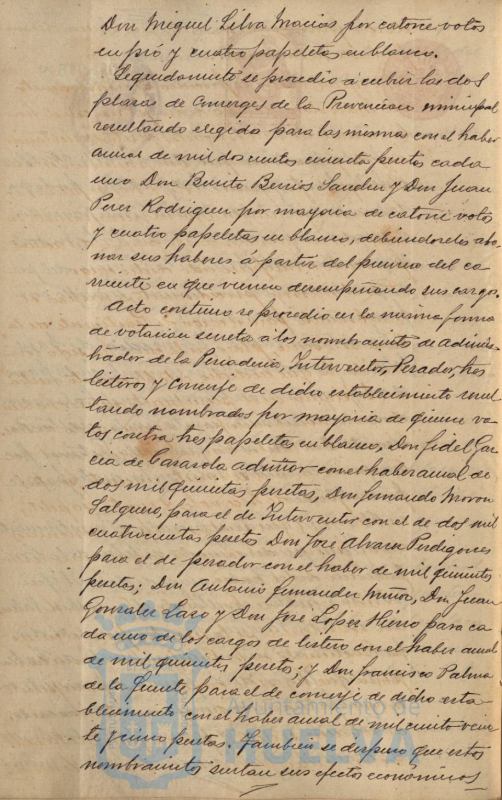 Don Miguel Silva Macias por catorce votos
en pró y cuatro papeletas en blanco.
Seguidamente se procedio á cubrir las dos
plazas de Conserges de la Prevencion municipal
resultando elegidos para las mismas con el haber
anual de mil doscientas cincuenta pesetas cada
uno Don Benito Berrios Sandin y Don Juan
Perez Rodriguez por mayoria de catorce votos
y cuatro papeletas en blanco, debiendoseles abo-
nar sus haberes á partir del primero del co-
rriente en que vienen desempeñando sus cargos.
Acto continuo se procedio en la misma forma
de votacion secreta á los nombramientos de adminis-
trador de la Pescaderia, Interventor, Pesador, tres
listeros y conserje de dicho establecimiento resul-
tando nombrados por mayoria de quince vo-
tos contra tres papeletas en blanco, Don Fidel Gar-
cia de Carasola admtor con el haber anual de
dos mil quinientas pesetas, Don Fernando Moron
Salguero, para el de Interventor con el de dos mil
cuatrocientas pesetas Don José Alvarez Perdigones
para el de pesador con el haber de mil quinientas
pesetas; Don Antonio Fernandez Muñoz, Don Juan
Gonzalez Lazo y Don José Lopez Hierro para ca-
da uno de los cargos de listero con el haber anual
de mil quinientas pesetas; y Don Francisco Palma
de la Fuente para el de conserje de dicho esta-
blecimiento con el haber anual de mil ciento vein-
te y cinco pesetas. Tambien se dispuso que estos
nombramientos surtan sus efectos economicos
Ayuntamiento de
HUELVA